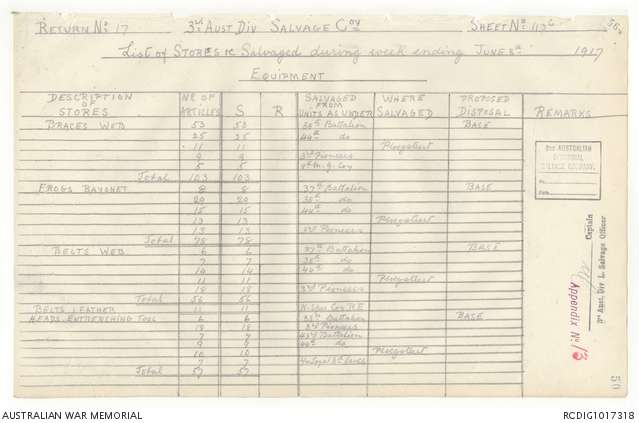 RETURN No 17 3rd AUST DIV SALVAGE Coy SHEET No
List of STORES &c Salvaged during week ending JUNE 8th 1917
EQUIPMENT
DESCRIPTION OF STORES No OF ARTICLES S R SALVAGED FROM UNITS AS UNDER WHERE SALVAGED PROPOSED DISPOSAL REMARKS
BRACES WEB 53 53 Battalion BASE
25 25 44th do
11 11 Ploegsteert
9 9 3rd Pioneers
5 5 M.G. Coy
Total 103 103
FROGS BAYONET 8 8 37th Battalion BASE
20 20 38th do
15 15 44th do
13 13 Ploegsteert
13 13 3rd Pioneers
Total 78 78
BELTS WEB 6 6 37th Battalion BASE
7 7 38th do
14 14 40th do
11 11 Ploegsteert
18 18 3rd Pioneers
Total 56 56
BELTS LEATHER 11 11 Coy R.E
HEADS ENTRENCHING TOOL 6 6 Battalion BASE
18 18 3rd Pioneers
7 7 43rd Battalion
9 9 44th do
10 10 Ploegsteert
7 7
Total 57 57
3RD AUSTRALIAN
DIVISIONAL
SALVAGE COMPANY.
No.
Date
Captain
3rd Aust. Div L. Salvage Officer
Appendix No. 13
50
AUSTRALIAN WAR MEMORIAL RCDIG1017318